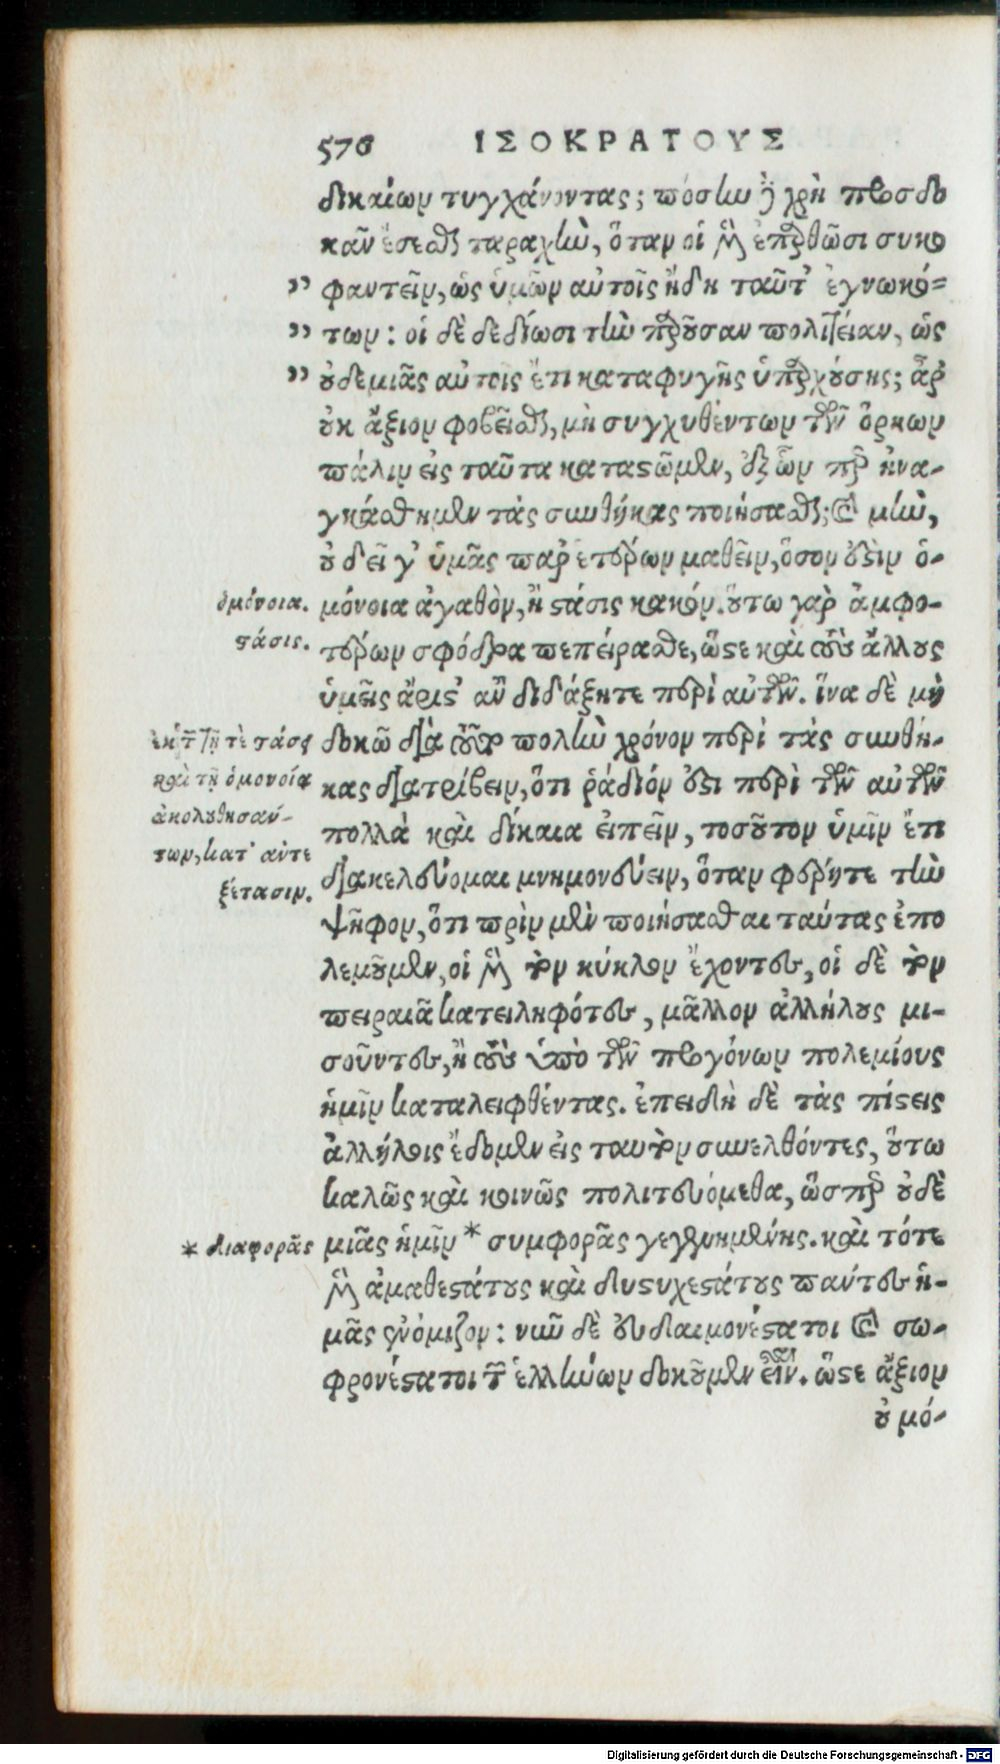 576 ΙΣΟΚΡΑΤΟΥΣ
δικαίων τυγχάνοντας; πόσην δὲ χρὴ προσδο
κᾶν ἔσεσθαι ταραχὴν, ὅταν οἱ μὲν ἐπαρθῶσι συκο
” φαντεῖν, ὡς ὑμῶν αὐτοῖς ἤδη ταῦτ’ ἐγνωκό-
” των: οἱ δὲ δεδίωσι τὴν παροῦσαν πολιτείαν, ὡς
” οὐδεμιᾶς αὐτοῖς ἔτι καταφυγῆς ὑπαρχούσης; ἆρ’
οὐκ ἄξιον φοβεῖσθαι, μὴ συγχυθέντων τῶν ὅρκων
πάλιν εἰς ταῦτα καταστῶμεν, ἐξ ὧν περ ἠνα-
γκάσθημεν τὰς συνθήκας ποιήσασθαι; καὶ μὴν,
οὐ δεῖ γ’ ὑμᾶς παρ’ ἑτέρων μαθεῖν, ὅσον ἐστὶν ὁ-
ὁμόνοια. μόνοια ἀγαθὸν, ἢ στάσις κακόν. οὕτω γὰρ ἀμφο-
στάσις. τέρων σφόδρα πεπείρασθε, ὥστε καὶ τοὺς ἄλλους
ὑμεῖς ἄριστ’ ἂν διδάξητε περὶ αὐτῶν. ἵνα δὲ μὴ
ἐκ τῶν τῇ τε στάσει δοκῶ διὰ τοῦτο πολὺν χρόνον περὶ τὰς συνθή-
καὶ τῇ ὁμονοίᾳ κας διατρίβειν, ὅτι ῥάδιόν ἐστι περὶ τῶν αὐτῶν
ἀκολουθησάν- πολλὰ καὶ δίκαια εἰπεῖν, τοσοῦτον ὑμῖν ἔτι
των, κατ’ ἀντε διακελεύομαι μνημονεύειν, ὅταν φέρητε τὴν
ξέτασιν. ψῆφον, ὅτι πρὶν μὲν ποιήσασθαι ταύτας ἐπο
λεμοῦμεν, οἱ μὲν τὸν κύκλον ἔχοντες, οἱ δὲ τὸν
πειραιᾶ κατειληφότες, μᾶλλον ἀλλήλους μι-
σοῦντες, ἢ τοὺς ὑπὸ τῶν προγόνων πολεμίους
ἡμῖν καταλειφθέντας. ἐπειδὴ δὲ τὰς πίστεις
ἀλλήλοις ἔδομεν εἰς ταυτὸν συνελθόντες, οὕτω
καλῶς καὶ κοινῶς πολιτευόμεθα, ὥσπερ οὐδε
* διαφορᾶς μιᾶς ἡμῖν * συμφορᾶς γεγενημένης. καὶ τότε
μὲν ἀμαθεστάτους καὶ δυστυχεστάτους πάντες ἡ-
μᾶς ἐνόμιζον: νῦν δὲ εὐδαιμονέστατοι καὶ σω-
φρονέστατοι τῶν ἑλλήνων δοκοῦμεν εἶναι. ὥστε ἄξιον
οὐ μό-
Digitalisierung gefördert durch die Deutsche Forschungsgemeinschaft - DFG